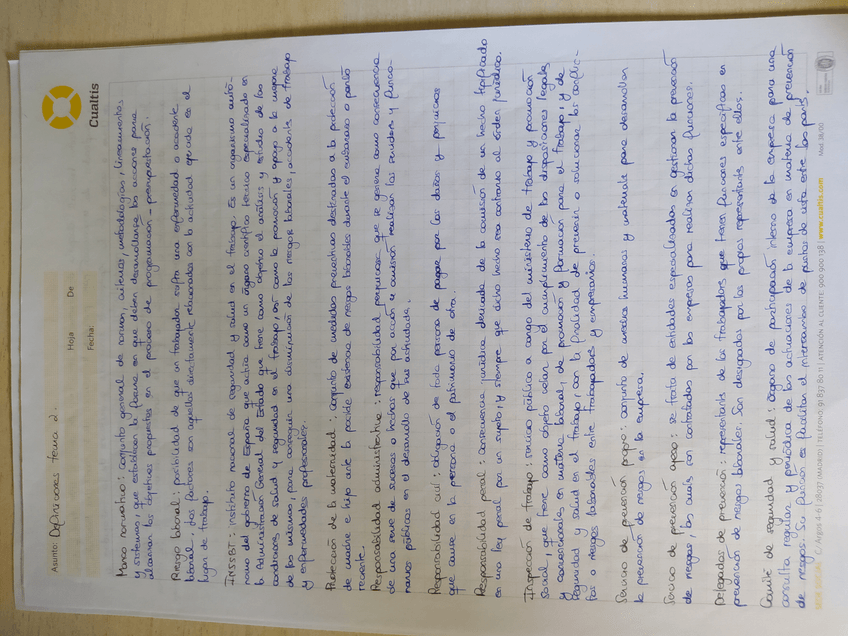 Cualtis
Asunto: Definiciones tema 2.
Hoja De
Fecha:
Marco normativo: conjunto general de normas, criterios, metodologías, lineamientos
y sistemas, que establecen la forma en que deben desarrollarse las acciones para
alcanzar los objetivos propuestos en el proceso de programación - presupuestación.
Riesgo laboral: posibilidad de que un trabajador sufra una enfermedad o accidente
laboral, dos factores son aquellos directamente relacionados con la actividad ejercida en el
lugar de trabajo.
INSSBT: instituto nacional de seguridad y salud en el trabajo. Es un organismo autó-
nomo del gobierno de España que actúa como un órgano científico técnico especializado en
la Administración General del Estado que tiene como objetivo el análisis y estudio de las
condiciones de salud y seguridad en el trabajo, así como la promoción y apoyo a la mejora
de las mismas, para conseguir una disminución de los riesgos laborales, accidentes de trabajo
y enfermedades profesionales.
Protección de la maternidad: conjunto de medidas preventivas destinadas a la protección
de madre e hijo ante la posible existencia de riesgos laborales durante el embarazo o parto
reciente.
Responsabilidad administrativa: responsabilidad que se genera como consecuencia
de una serie de sucesos o hechos que por acción u omisión realizan los servidores y funcio-
narios públicos en el desarrollo de sus actividades.
Responsabilidad civil: obligación de toda persona de pagar por los daños y perjuicios
que cause en la persona o el patrimonio de otra.
Responsabilidad penal: consecuencia jurídica derivada de la comisión de un hecho tipificado
en una ley penal por un sujeto, y siempre que dicho hecho sea contrario al orden jurídico.
Inspección de trabajo: servicio público a cargo del ministerio de trabajo y promoción
social, que tiene como objeto velar por el cumplimiento de las disposiciones legales
y convencionales en materia laboral, de promoción y formación para el trabajo, y de
seguridad y salud en el trabajo, con la finalidad de prevenir o solucionar los conflic-
tos o riesgos laborales entre trabajadores y empresarios.
Servicio de prevención propio: conjunto de medios humanos y materiales para desarrollar
la prevención de riesgos en la empresa.
Servicio de prevención ajeno: se trata de entidades especializadas en gestionar la prevención
de riesgos, las cuales son contratadas por las empresas para realizar dichas funciones.
Delegados de prevención: representante de los trabajadores que tienen funciones específicas en
prevención de riesgos laborales. Son designados por los propios representantes entre ellos.
Comité de seguridad y salud: órgano de participación interno de la empresa para una
consulta regular y periódica de las actuaciones de la empresa en materia de prevención
de riesgos. Su función es facilitar el intercambio de puntos de vista entre las partes.
SEDE SOCIAL: C/ Argos 4-6 | 28037 (MADRID) | TELÉFONO: 91 837 80 11 | ATENCIÓN AL CLIENTE: 900 900 138 | www.cualtis.com Mod. 38/00